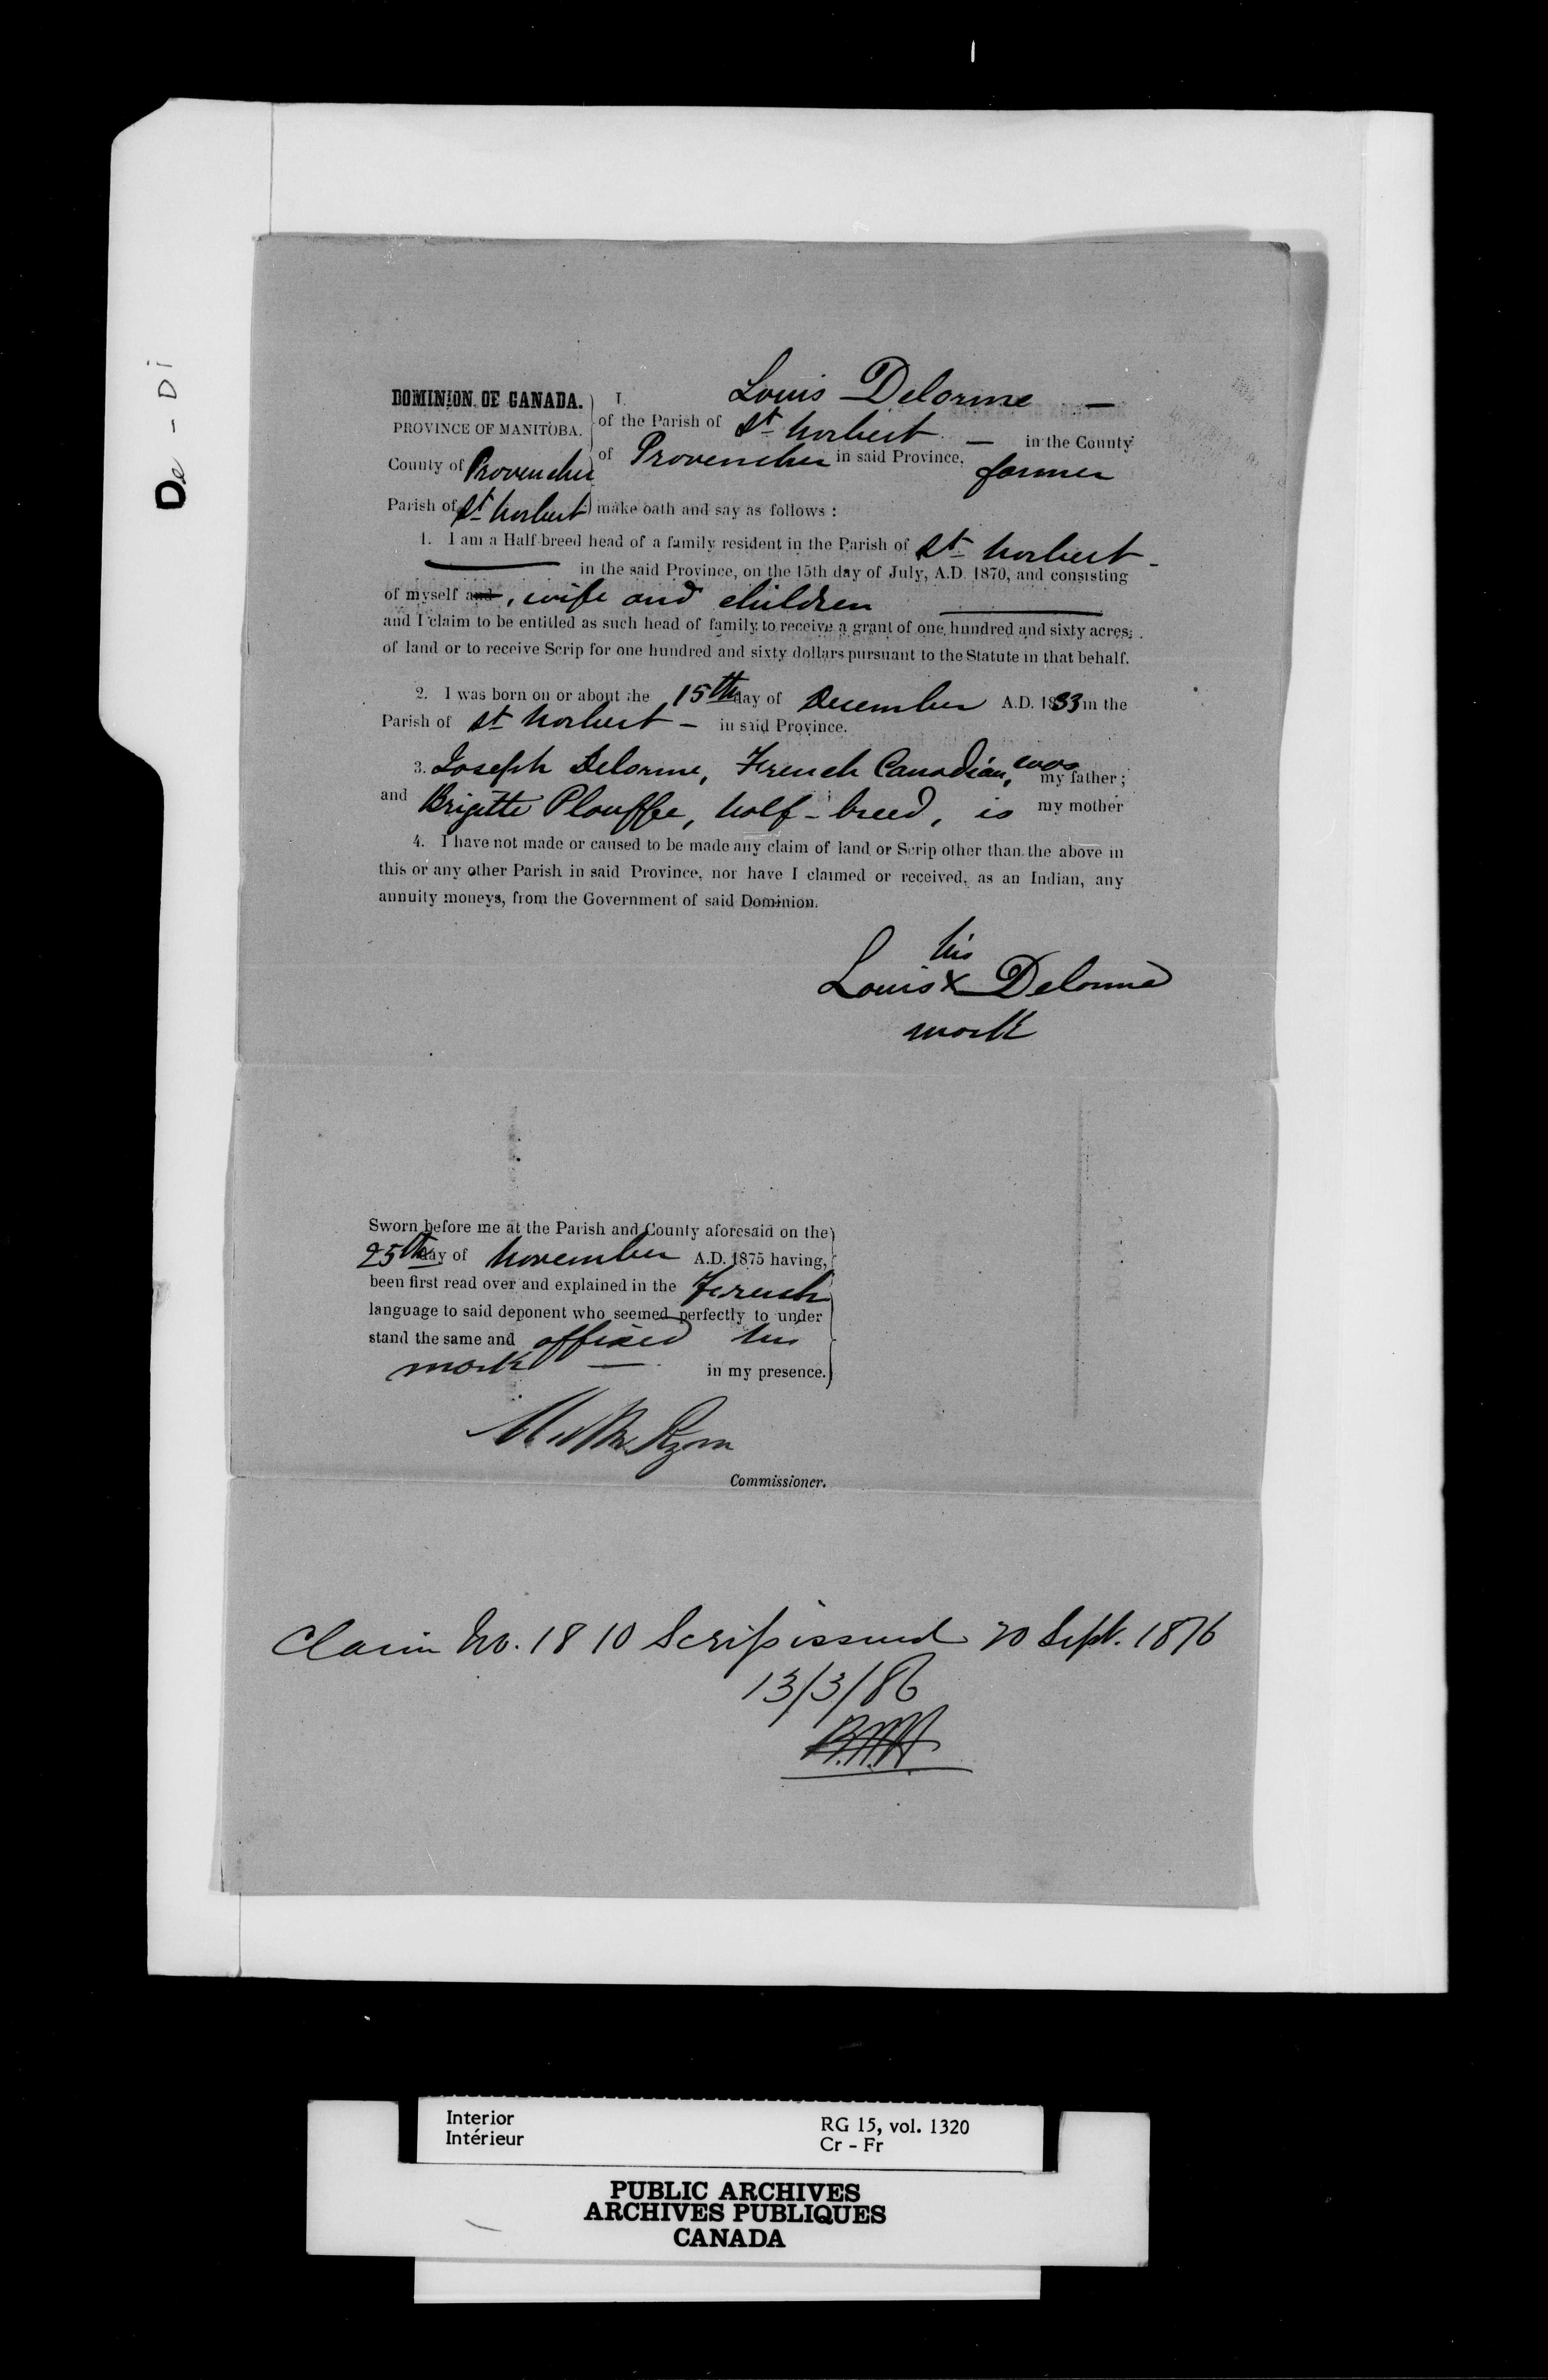 De - Di
DOMINION OF CANADA.
PROVINCE OF MANITOBA.
County of Provencher
Parish of St Norbert
I, Louis Delorme —
of the Parish of St Norbert — in the County
of Provencher in said Province, farmer
make oath and say as follows :
1. I am a Half-breed head of a family resident in the Parish of St Norbert -
in the said Province, on the 15th day of July, A.D. 1870, and consisting
of myself and, wife and children
and I claim to be entitled as such head of family to receive a grant of one hundred and sixty acres
of land or to receive Scrip for one hundred and sixty dollars pursuant to the Statute in that behalf.
2. I was born on or about the 15th day of December A.D. 1833 in the
Parish of St Norbert — in said Province.
3. Joseph Delorme, French Canadian, was my father ;
and Brigitte Plouffe, half-breed, is my mother
4. I have not made or caused to be made any claim of land or Scrip other than the above in
this or any other Parish in said Province, nor have I claimed or received, as an Indian, any
annuity moneys, from the Government of said Dominion.
his
Louis x Delorme
mark
Sworn before me at the Parish and County aforesaid on the
25th day of November A.D. 1875 having,
been first read over and explained in the French
language to said deponent who seemed perfectly to under
stand the same and affixed his
mark — in my presence.
Ryan
Commissioner.
Claim No. 1810 Scrip issued 20 Sept. 1876
13/3/86
Interior
Intérieur
RG 15, vol. 1320
Cr - Fr
PUBLIC ARCHIVES
ARCHIVES PUBLIQUES
CANADA